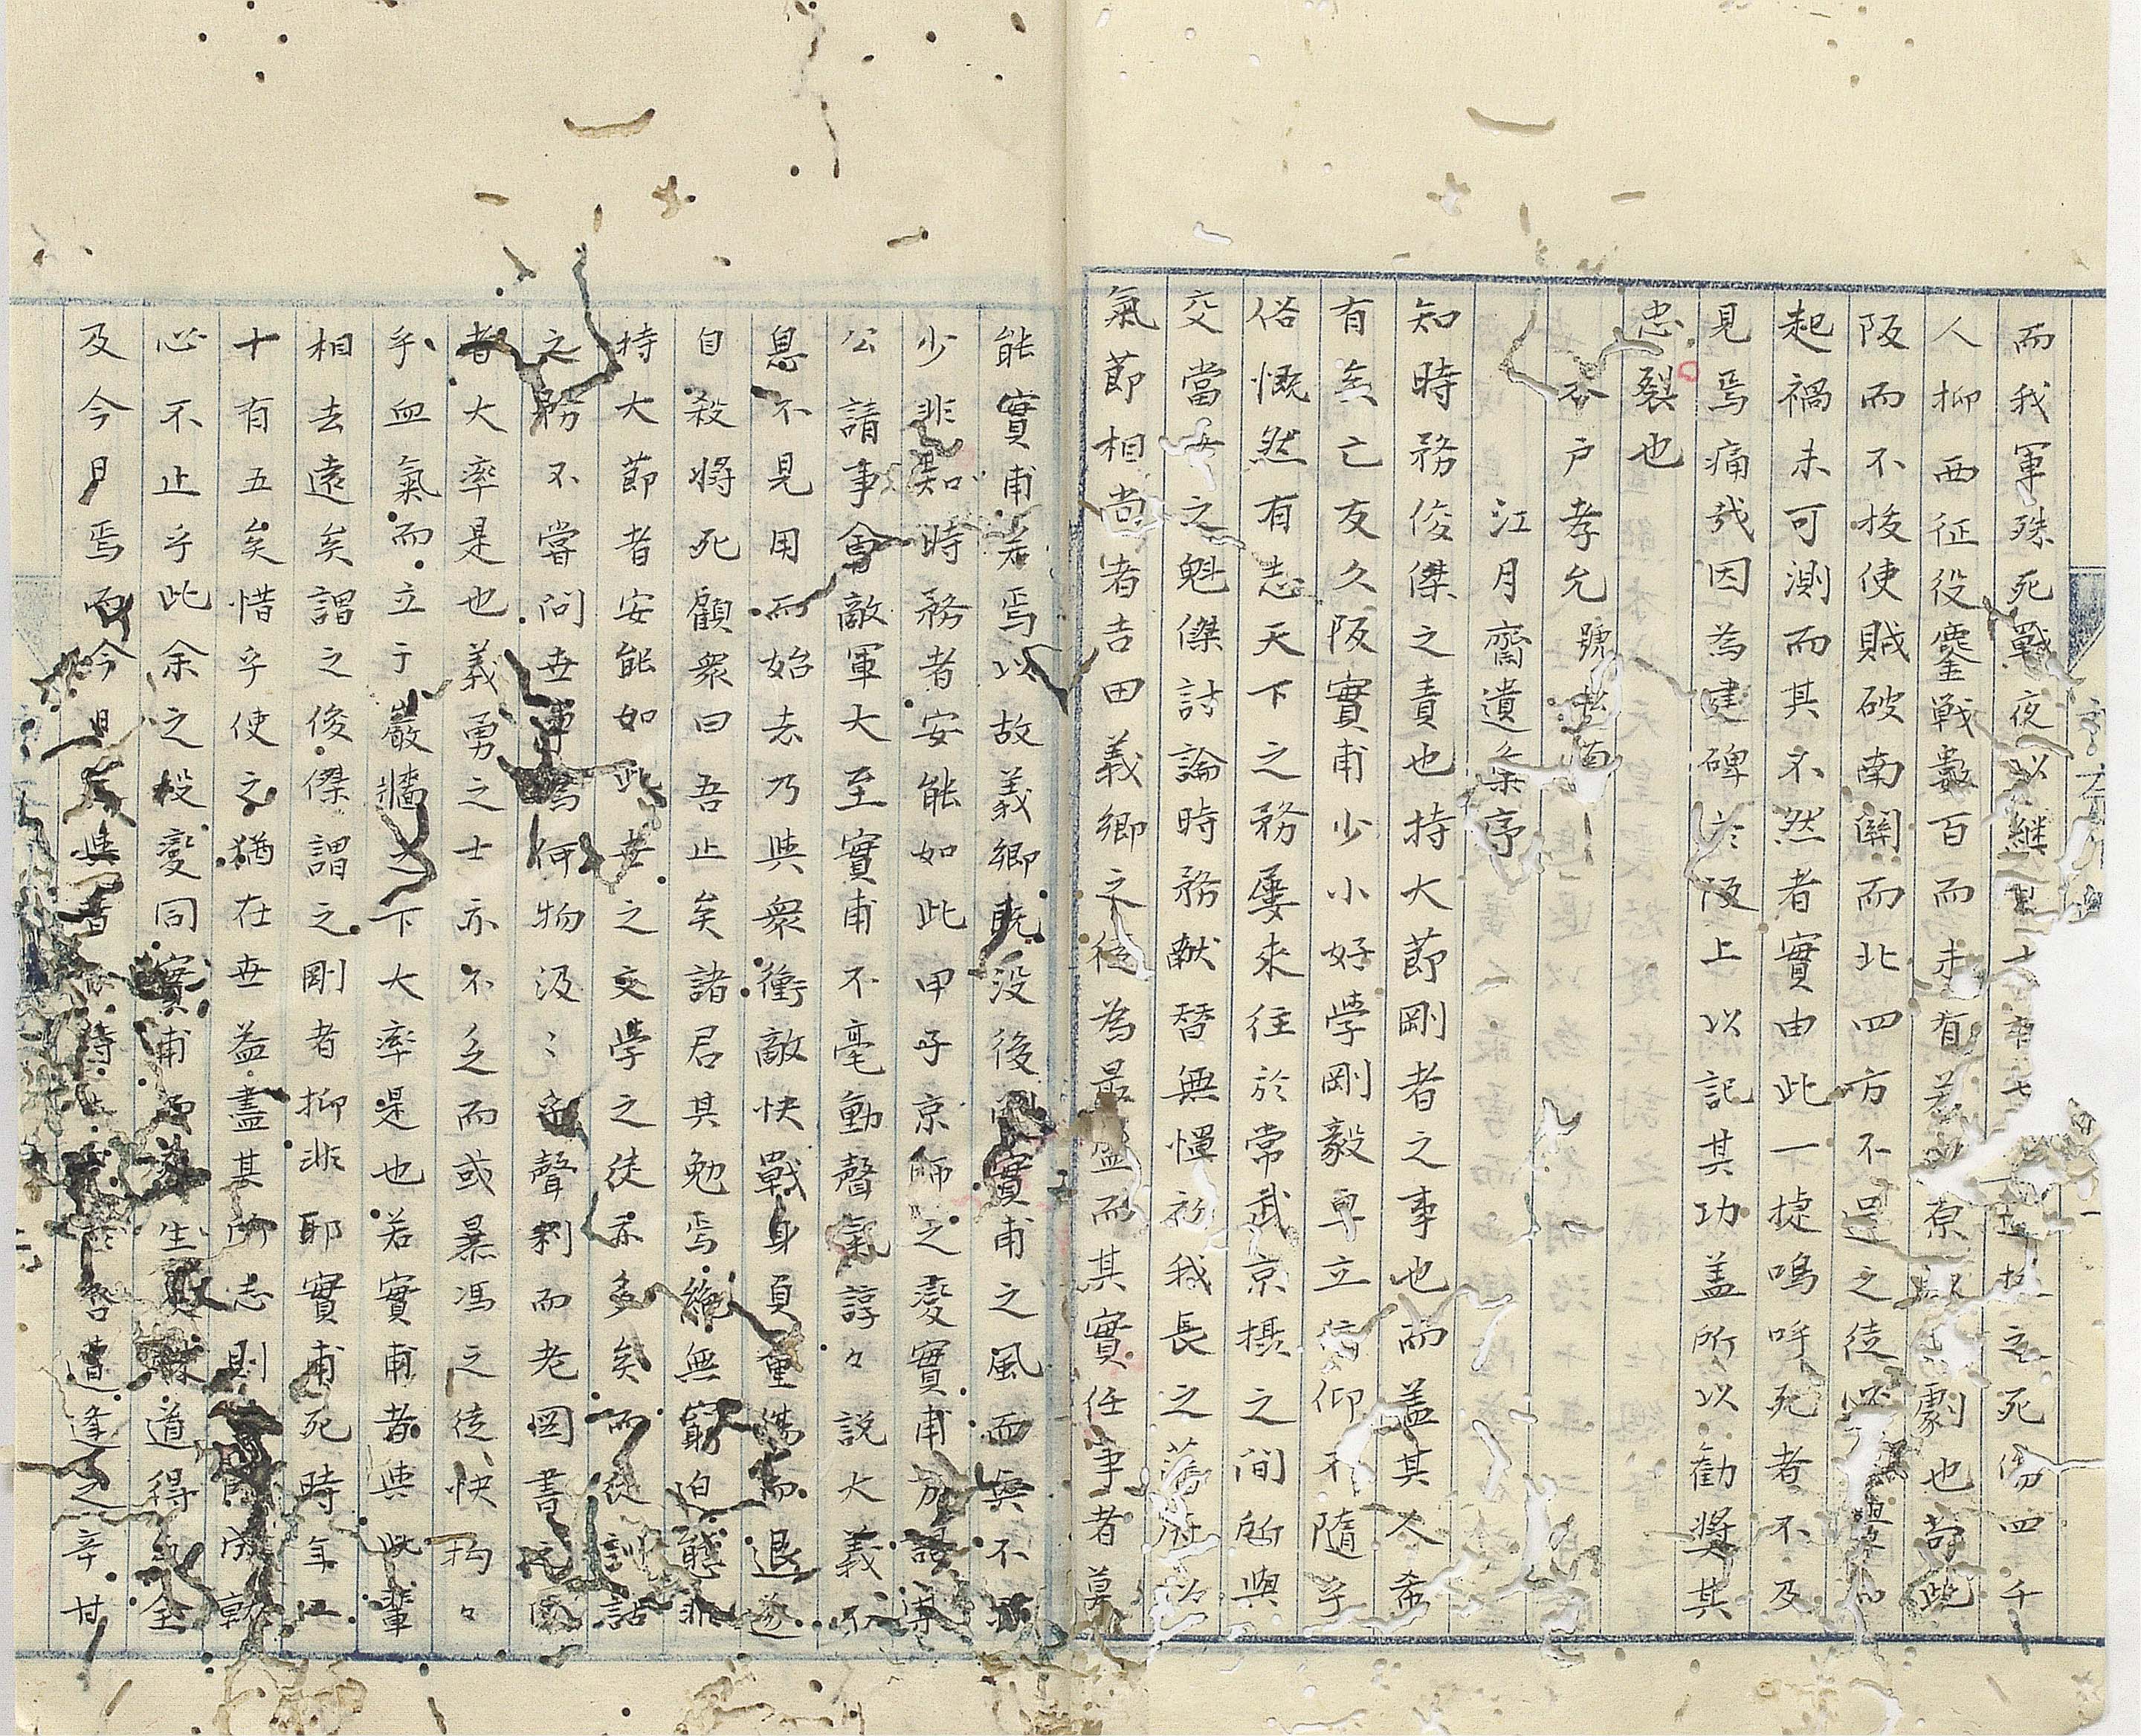 而我軍殊死戰夜以繼日十有七死傷四千
人抑西征役鏖戰數百而未有若原劇也苟此
阪而不拔使賊破南關而北四方不逞之徒
起禍未可測而其不然者實由此一捷嗚呼死者不及
見焉痛哉因為建碑於阪上以記其功盖所以勸奬其
忠裂也
木戶孝允號松菊
江月齋遺集序
知時務俊傑之責也持大節剛者之事也而盖其人希
有矣亡友久阪實甫少小好學剛毅卓立俯仰不隨乎
俗慨然有志天下之務屢來往於常武京摂之間所與
交當世之魁傑討論時務献替無憚於我長之藩府以
氣節相尚者吉田義卿之徒為最盛而其實任事者莫
能實甫若焉以故義卿既没後實甫之風而與不
少非知時務者安能如此甲子京師之變實甫
公請事會敵軍大至實甫不毫動聲氣諄々說大義不
見用而始去乃與衆衝敵快戰身負重傷而退遂
自殺將死顧衆曰吾止矣諸君其勉焉絶無窮迫態非
持大節者安能如此世之文學之徒亦多矣而從訓詁
之務不嘗問世事為何物汲〻聲利而老図書之
者大率是也義勇之士亦不乏而或暴馮之徒快々
乎血氣而立于巖牆之下大率是也若實甫者與此輩
相去遠矣謂之俊傑謂之剛者抑非耶實甫死時年二
十有五矣惜乎使之猶在世益盡其所志則
心不止乎此余之投變同實甫而生道得全
及今日焉而今遭逢之辛甘